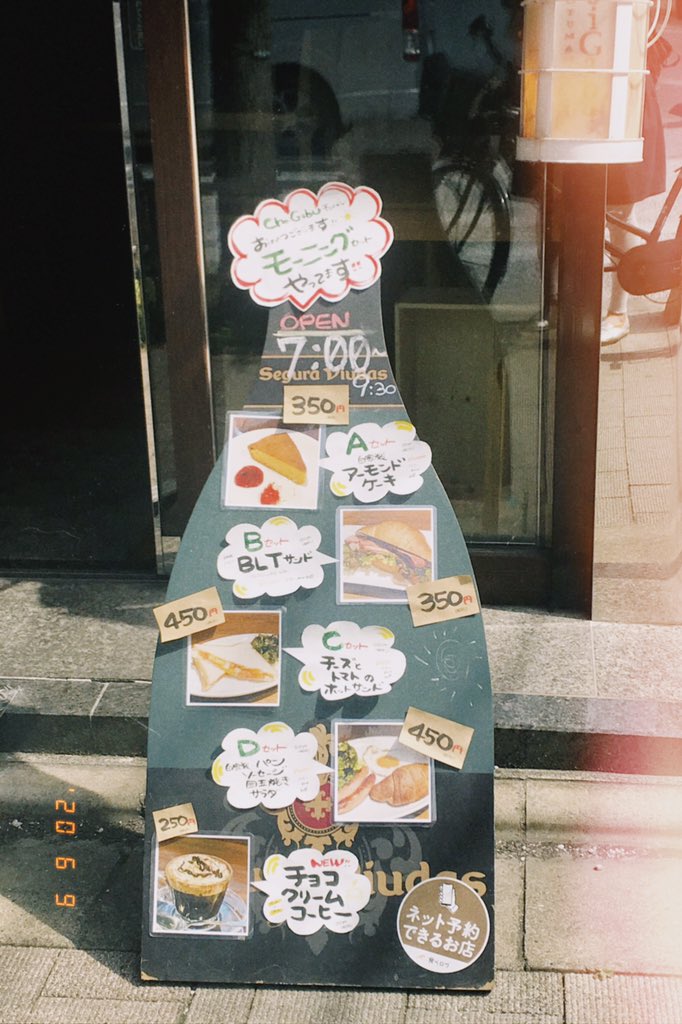 おはようございます
モーニングセット
やってます!!
OPEN
7:00~
Segura Viudas
9:30
350円
Aセット
自家製
アーモンド
ケーキ
Bセット
BLTサンド
350円
450円
Cセット
チーズと
トマトの
ホットサンド
450円
Dセット
自家製パン
ソーセージ
目玉焼き
サラダ
250円
NEW
チョコ
クリーム
コーヒー
ネット予約
できるお店
食べログ
'20 6 9